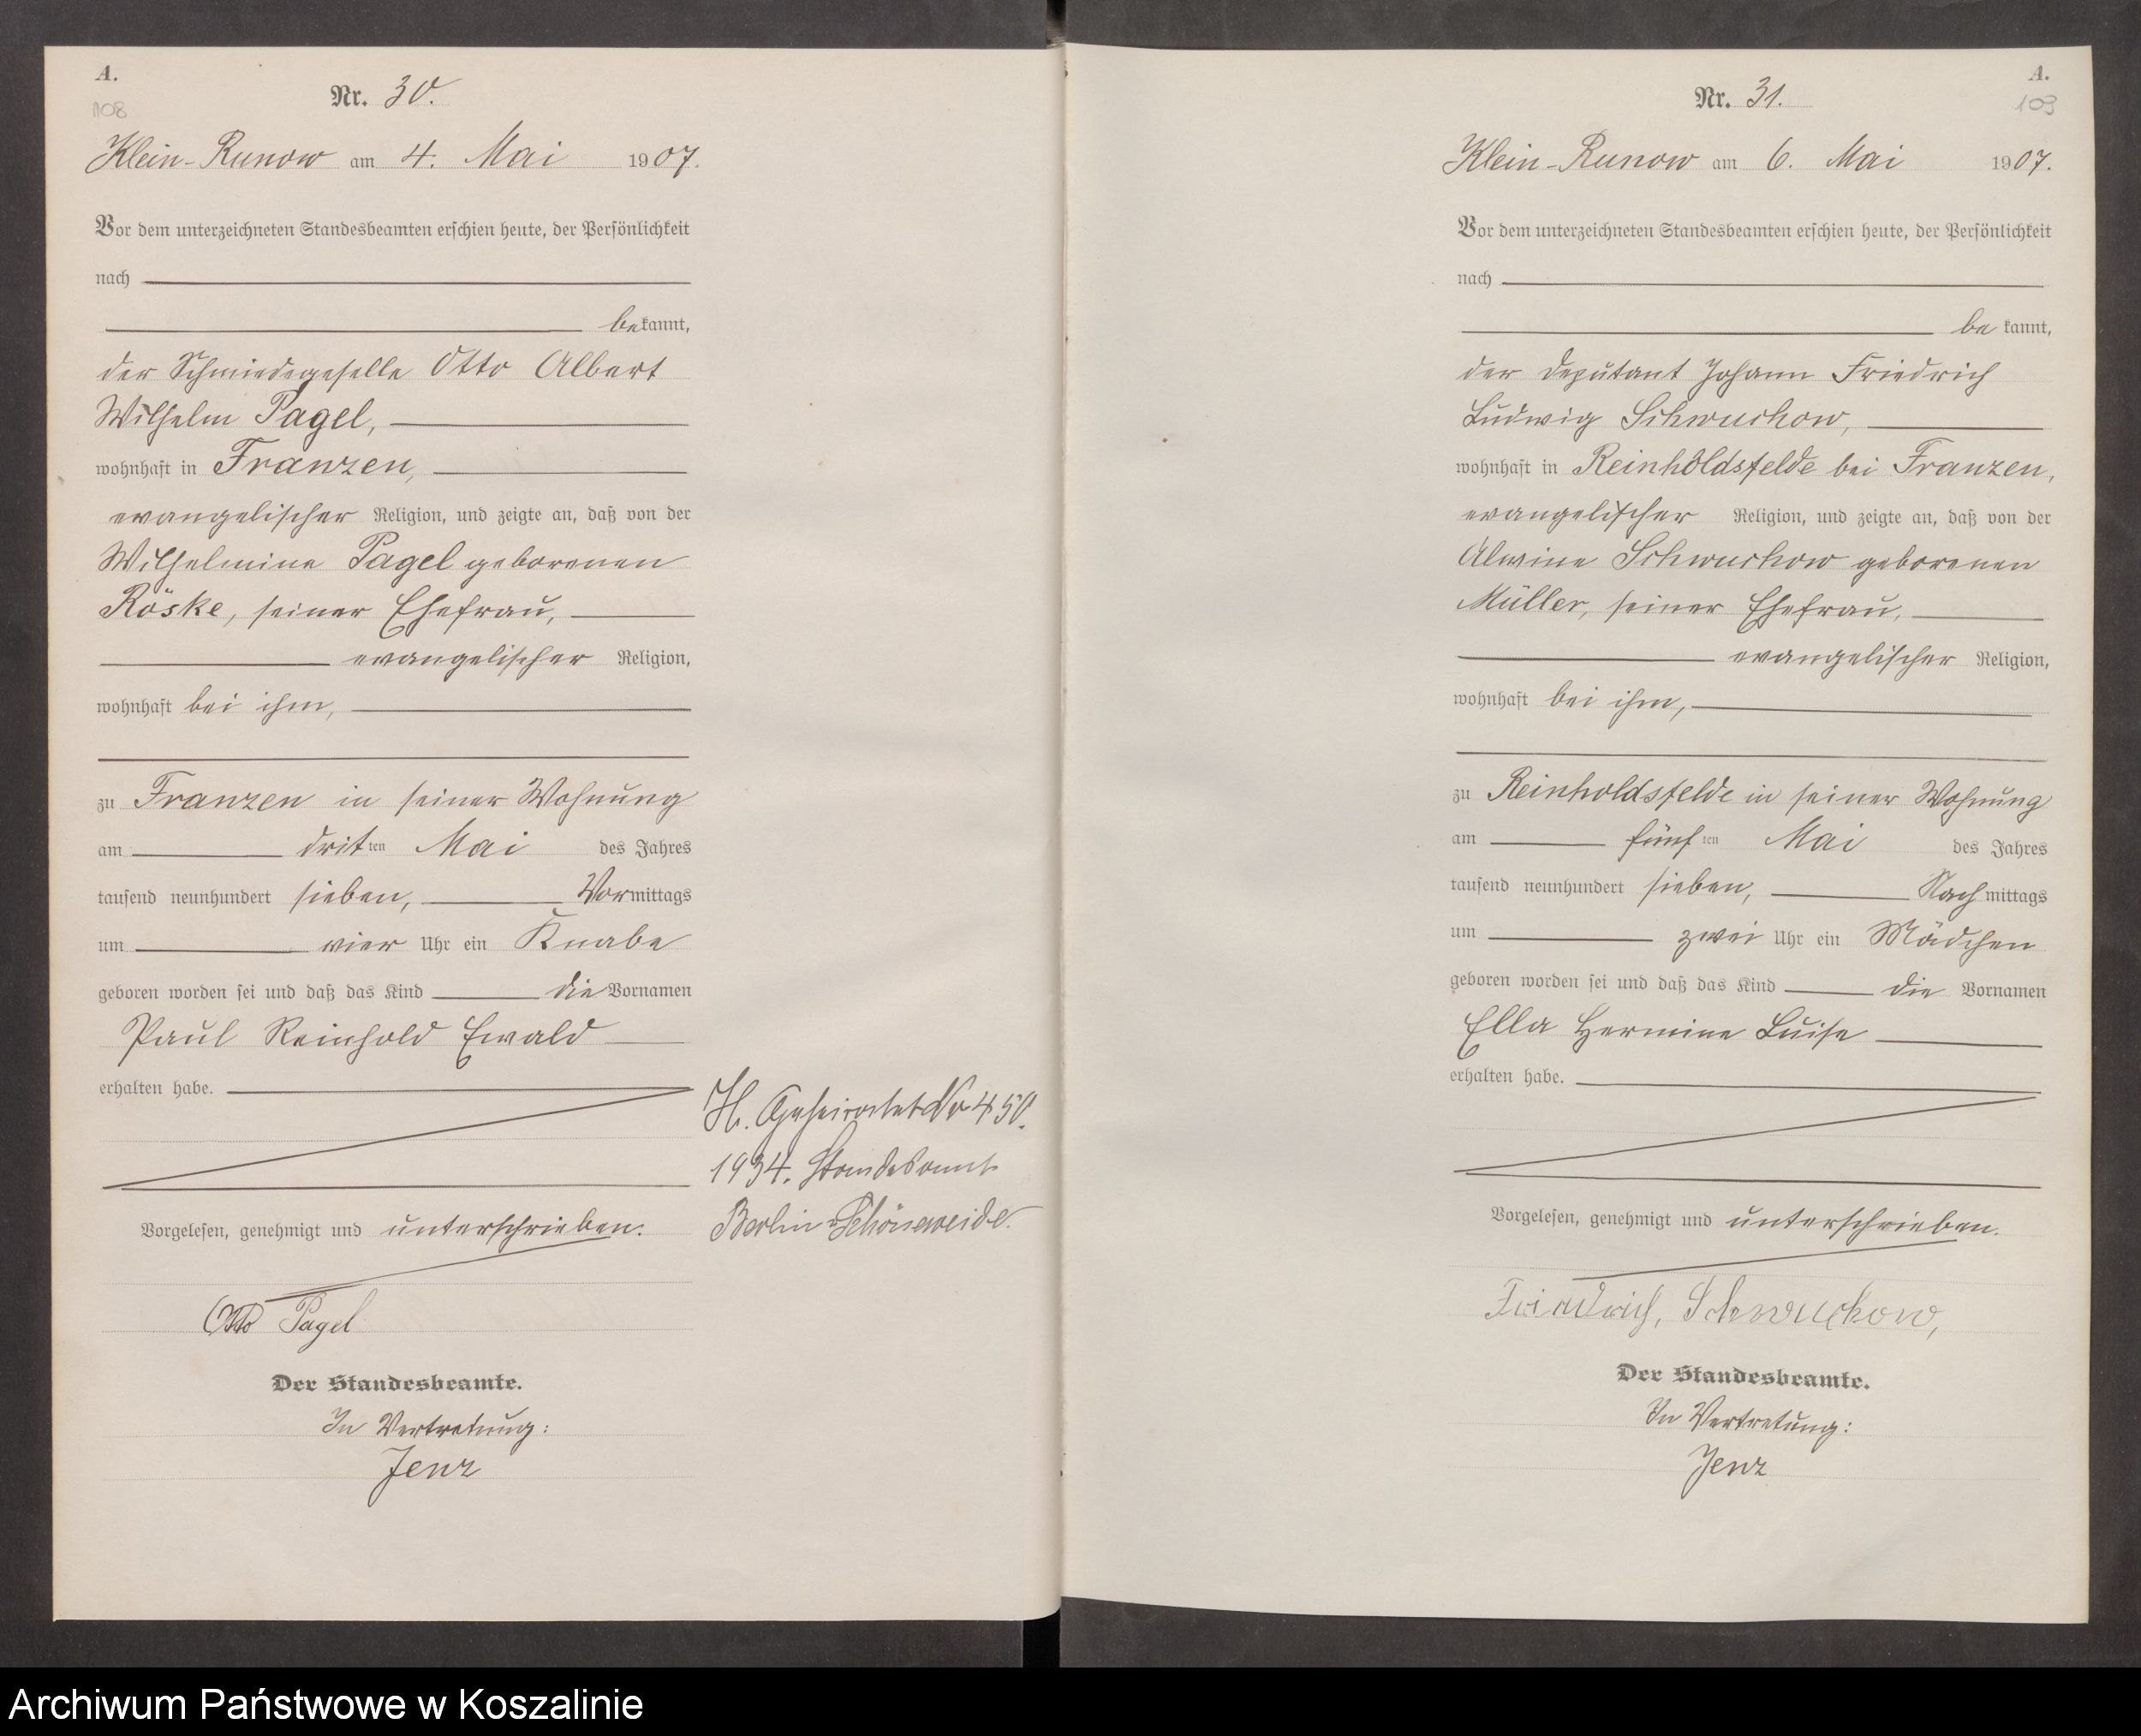 A.
108
Nr. 30.
Klein-Runow am 4. Mai 1907.
Vor dem unterzeichneten Standesbeamten erschien heute, der Persönlichkeit
nach
bekannt,
der Schmiedegeselle Otto Albert
Wilhelm Pagel,
wohnhaft in Franzen,
evangelischer Religion, und zeigte an, daß von der
Wilhelmine Pagel geborenen
Röske, seiner Ehefrau,
evangelischer Religion,
wohnhaft bei ihm,
zu Franzen in seiner Wohnung
am dritten Mai des Jahres
tausend neunhundert sieben, Vormittags
um vier Uhr ein Knabe
geboren worden sei und daß das Kind die Vornamen
Paul Reinhold Ewald
erhalten habe.
H. Geheiratet No 450.
1934. Standesamt
Berlin-Schöneweide.
Vorgelesen, genehmigt und unterschrieben.
Otto Pagel
Der Standesbeamte.
In Vertretung:
Jenz
A.
109
Nr. 31.
Klein-Runow am 6. Mai 1907.
Vor dem unterzeichneten Standesbeamten erschien heute, der Persönlichkeit
nach
bekannt,
der Deputant Johann Friedrich
Ludwig Schwuchow,
wohnhaft in Reinholdsfelde bei Franzen,
evangelischer Religion, und zeigte an, daß von der
Alwine Schwuchow geborenen
Müller, seiner Ehefrau,
evangelischer Religion,
wohnhaft bei ihm,
zu Reinholdsfelde in seiner Wohnung
am fünften Mai des Jahres
tausend neunhundert sieben, Nachmittags
um zwei Uhr ein Mädchen
geboren worden sei und daß das Kind die Vornamen
Ella Hermine Luise
erhalten habe.
Vorgelesen, genehmigt und unterschrieben.
Friedrich, Schwuchow,
Der Standesbeamte.
In Vertretung:
Jenz
Archiwum Państwowe w Koszalinie